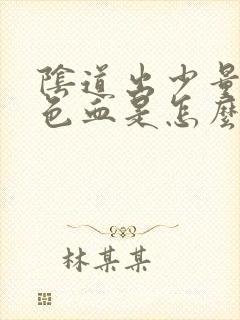 陰道出少量
色血是怎麼
林某某